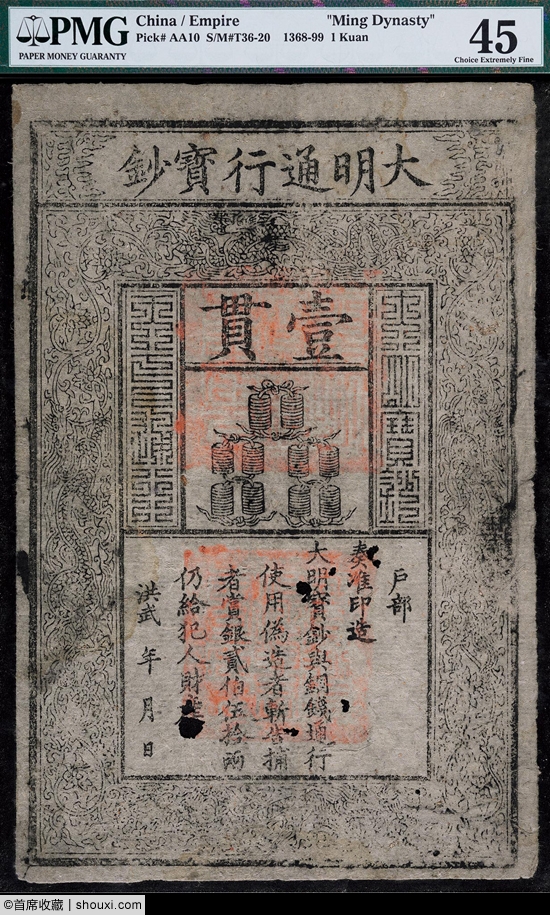 PMG
PAPER MONEY GUARANTY
China / Empire "Ming Dynasty"
Pick# AA10 S/M#T36-20 1368-99 1 Kuan
45
Choice Extremely Fine
大明通行寶鈔
壹貫
戶部
奏准印造
大明寶鈔與銅錢通行
使用偽造者斬告捕
者賞銀貳伯伍拾兩
仍給犯人財
洪武 年 月 日
©首席收藏 | shouxi.com